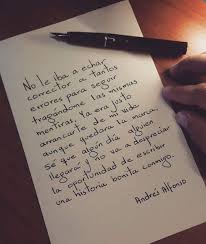 No le iba a echar
corrector a tantos
errores para seguir
tragándome las mismas
mentiras. Ya era justo
arrancarte de mi vida
aunque quedara la marca.
sé que algún día alguien
llegará y no va a despreciar
la oportunidad de escribir
una historia bonita conmigo.
Andrés Alfonso